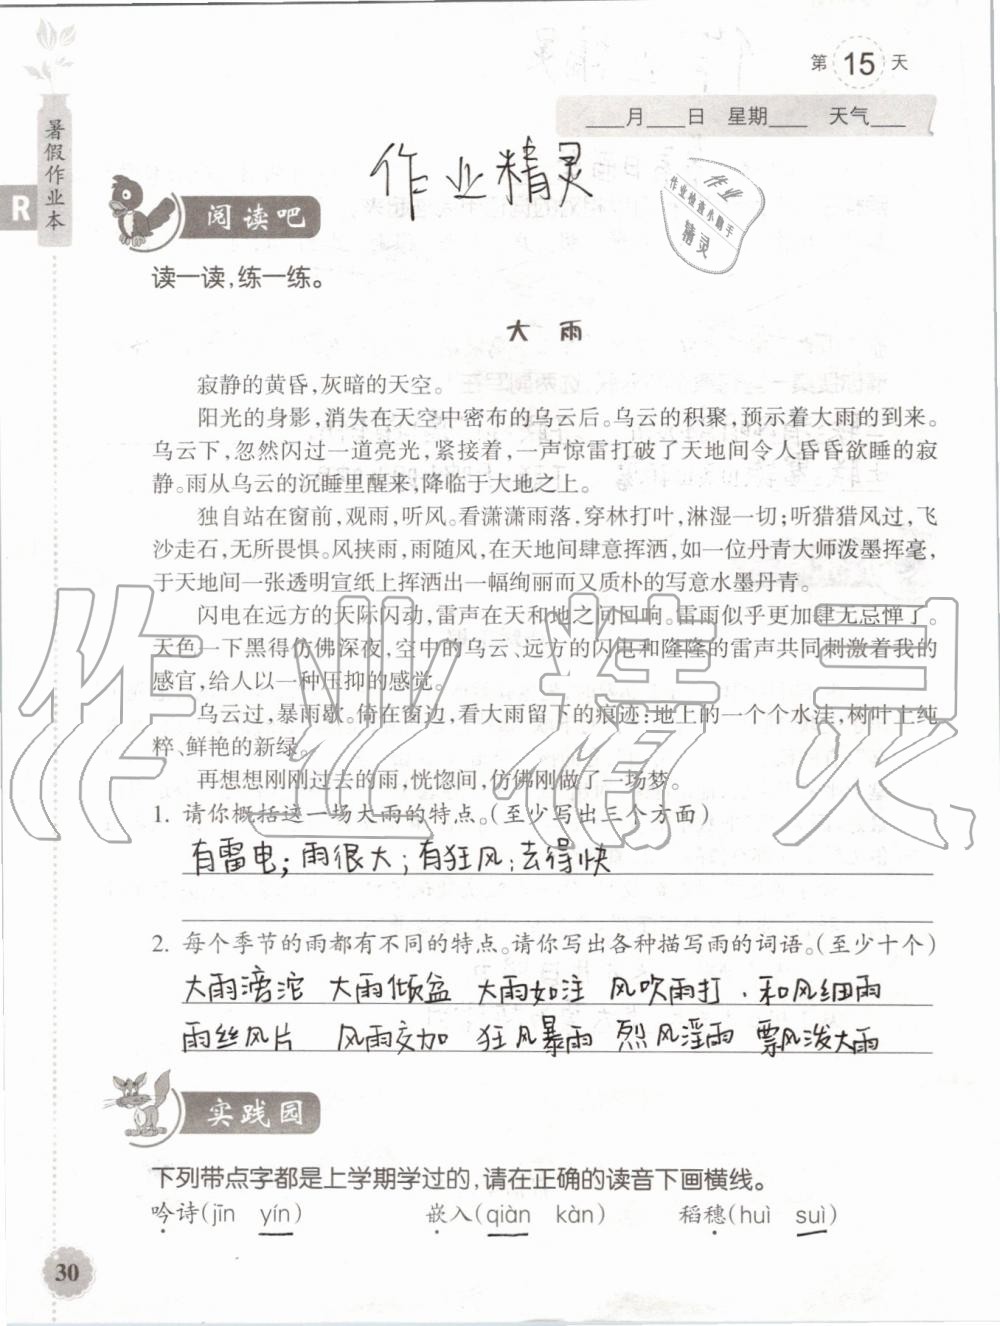 第 15 天
___月___日 星期___ 天气___
暑假作业本
R
作业精灵
作业
作业检查小助手
精灵
阅读吧
读一读,练一练。
大 雨
寂静的黄昏,灰暗的天空。
阳光的身影,消失在天空中密布的乌云后。乌云的积聚,预示着大雨的到来。
乌云下,忽然闪过一道亮光,紧接着,一声惊雷打破了天地间令人昏昏欲睡的寂
静。雨从乌云的沉睡里醒来,降临于大地之上。
独自站在窗前,观雨,听风。看潇潇雨落,穿林打叶,淋湿一切;听猎猎风过,飞
沙走石,无所畏惧。风挟雨,雨随风,在天地间肆意挥洒,如一位丹青大师泼墨挥毫,
于天地间一张透明宣纸上挥洒出一幅绚丽而又质朴的写意水墨丹青。
闪电在远方的天际闪动,雷声在天和地之间回响。雷雨似乎更加肆无忌惮了。
天色一下黑得仿佛深夜,空中的乌云、远方的闪电和隆隆的雷声共同刺激着我的
感官,给人以一种压抑的感觉。
乌云过,暴雨歇。倚在窗边,看大雨留下的痕迹:地上的一个个水洼,树叶上纯
粹、鲜艳的新绿。
再想想刚刚过去的雨,恍惚间,仿佛刚做了一场梦。
作业精灵
1. 请你概括这一场大雨的特点。(至少写出三个方面)
有雷电;雨很大;有狂风;去得快
2. 每个季节的雨都有不同的特点。请你写出各种描写雨的词语。(至少十个)
大雨滂沱 大雨倾盆 大雨如注 风吹雨打 和风细雨
雨丝风片 风雨交加 狂风暴雨 烈风淫雨 飘风泼大雨
实践园
下列带点字都是上学期学过的,请在正确的读音下画横线。
吟诗(jīn yín) 嵌入(qiàn kàn) 稻穗(huì suì)
30